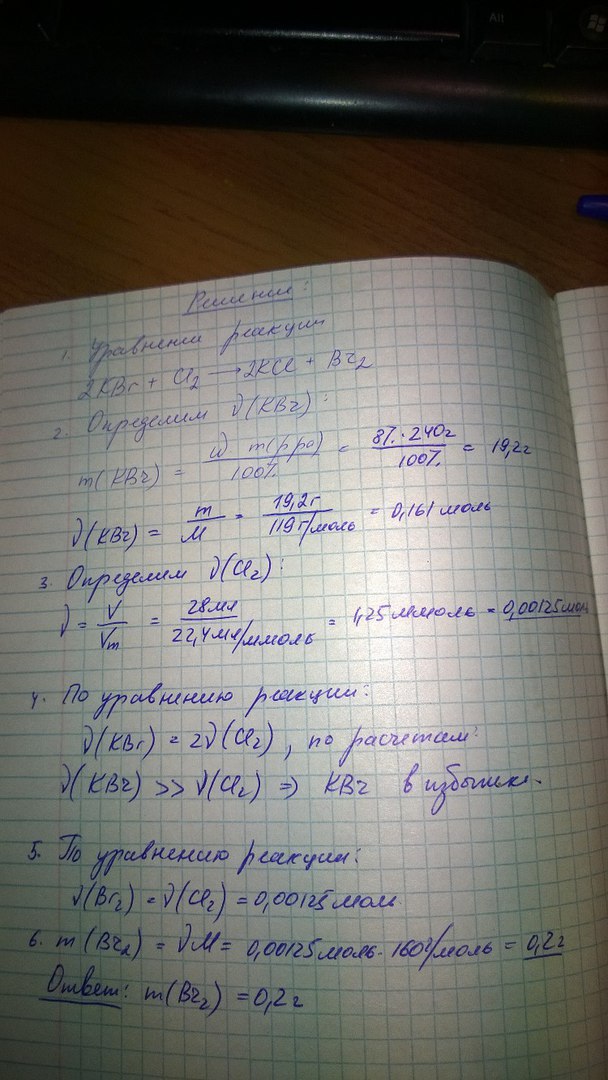 Alt
Решение:
1. Уравнение реакции
2KBr + Cl2 → 2KCl + Br2
2. Определим ν(KBr):
m(KBr) = ω m(р-ра) / 100% = 8% · 240г / 100% = 19,2г
ν(KBr) = m / M = 19,2г / 119г/моль = 0,161 моль
3. Определим ν(Cl2):
ν = V / Vm = 28мл / 22,4мл/ммоль = 1,25 ммоль = 0,00125 моль
4. По уравнению реакции:
ν(KBr) = 2ν(Cl2), по расчетам:
ν(KBr) >> ν(Cl2) => KBr в избытке.
5. По уравнению реакции:
ν(Br2) = ν(Cl2) = 0,00125 моль
6. m(Br2) = νM = 0,00125 моль · 160г/моль = 0,2г
Ответ: m(Br2) = 0,2г